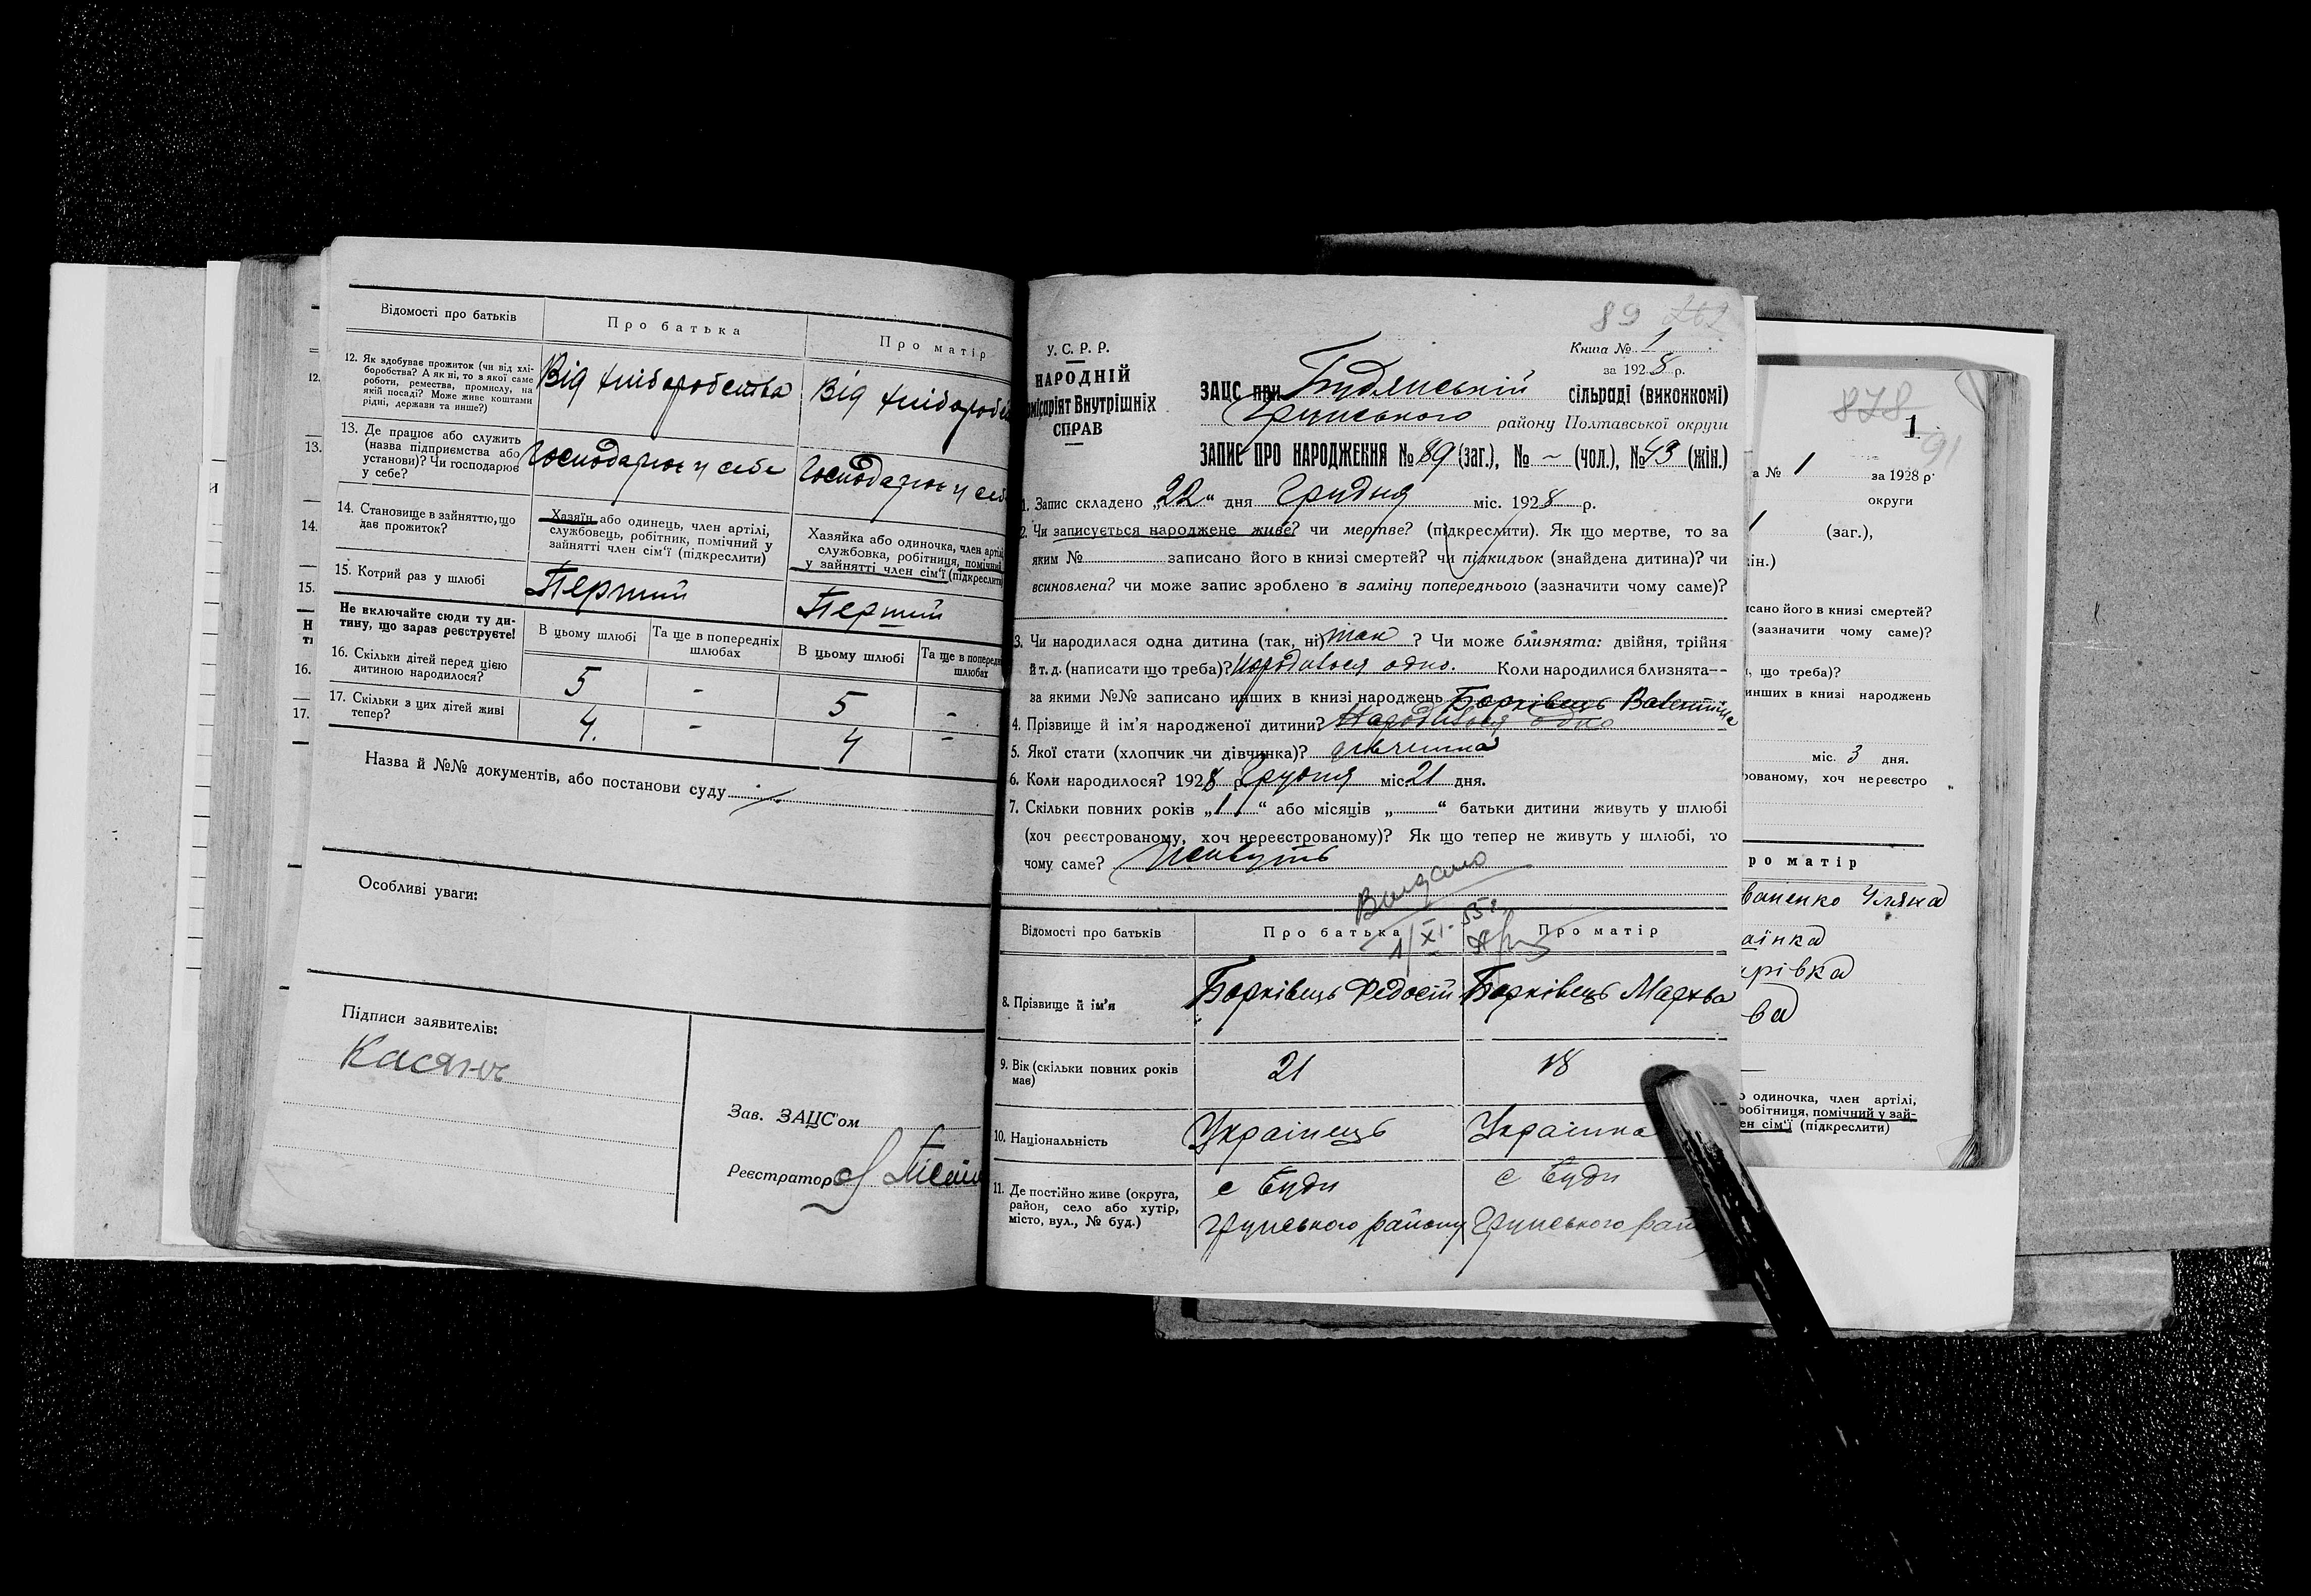 Відомості про батьків
Про батька
Про матір
12. Як здобуває прожиток (чи від хлі-
боробства? А як ні, то з якої саме
роботи, ремества, промислу, на
якій посаді? Може живе коштами
рідні, держави та инше?)
Від хліборобства
Від хлібороб
13. Де працює або служить
(назва підприємства або
установи)? Чи господарює
у себе?
Господарює у себе
Господарює у себ
14. Становище в зайняттю, що
дає прожиток?
Хазяїн або одинець, член артілі,
службовець, робітник, помічний у
зайнятті член сім'ї (підкреслити)
Хазяйка або одиночка, член артіл
службовка, робітниця, помічний
у зайнятті член сім'ї (підкреслити
15. Котрий раз у шлюбі
Перший
Перший
Не включайте сюди ту ди-
тину, що зараз реєструєте!
В цьому шлюбі
Та ще в попередніх
шлюбах
В цьому шлюбі
Та ще в поперед
шлюбах
16. Скільки дітей перед цією
дитиною народилося?
5 - 5 -
17. Скільки з цих дітей живі
тепер?
4. - 4 -
Назва й №№ документів, або постанови суду
Особливі уваги:
Підписи заявителів:
Касян
Зав. ЗАЦС'ом
Реєстратор
12.
13.
14.
15.
16.
17.
89 262
У. С. Р. Р.
НАРОДНІЙ
місаріят Внутрішніх
СПРАВ
Книга № 1
за 1928 р.
ЗАЦС при Будянській сільраді (виконкомі)
Грунського району Полтавської округи
ЗАПИС ПРО НАРОДЖЕННЯ № 89 (заг.), № – (чол.), № 43 (жін.)
1. Запис складено „22“ дня Грудня міс. 1928 р.
2. Чи записується народжене живе? чи мертве? (підкреслити). Як що мертве, то за
яким № записано його в книзі смертей? чи підкидьок (знайдена дитина)? чи
всиновлена? чи може запис зроблено в заміну попереднього (зазначити чому саме)?
3. Чи народилася одна дитина (так, ні) так ? Чи може близнята: двійня, трійня
й т. д. (написати що треба)? Народилося одно. Коли народилися близнята—
за якими №№ записано инших в книзі народжень Борківець Валентина
4. Прізвище й ім'я народженої дитини? Народилося одно
5. Якої стати (хлопчик чи дівчинка)? дівчинка
6. Коли народилося? 1928 р. Грудня міс. 21 дня.
7. Скільки повних років „11“ або місяців „ “ батьки дитини живуть у шлюбі
(хоч реєстрованому, хоч нереєстрованому)? Як що тепер не живуть у шлюбі, то
чому саме?
Видано
1/XI-55 г.
Відомості про батьків
Про батька
Про матір
8. Прізвище й ім'я
Борківець Федосій
Борківець Мархва
9. Вік (скільки повних років
має)
21
18
10. Національність
Українець
Українка
11. Де постійно живе (округа,
район, село або хутір,
місто, вул., № буд.)
с Буди
Грунського району
с Буди
Грунського рай
878
91
1
а № 1 за 1928 р.
округи
(заг.),
ін.)
исано його в книзі смертей?
(зазначити чому саме)?
, що треба)?
инших в книзі народжень
міс. 3 дня.
рованому, хоч нереєстро
ро матір
ваненко Уляна
аїнка
рівка
ва
о одиночка, член артілі,
робітниця, помічний у зай-
ен сім'ї (підкреслити)